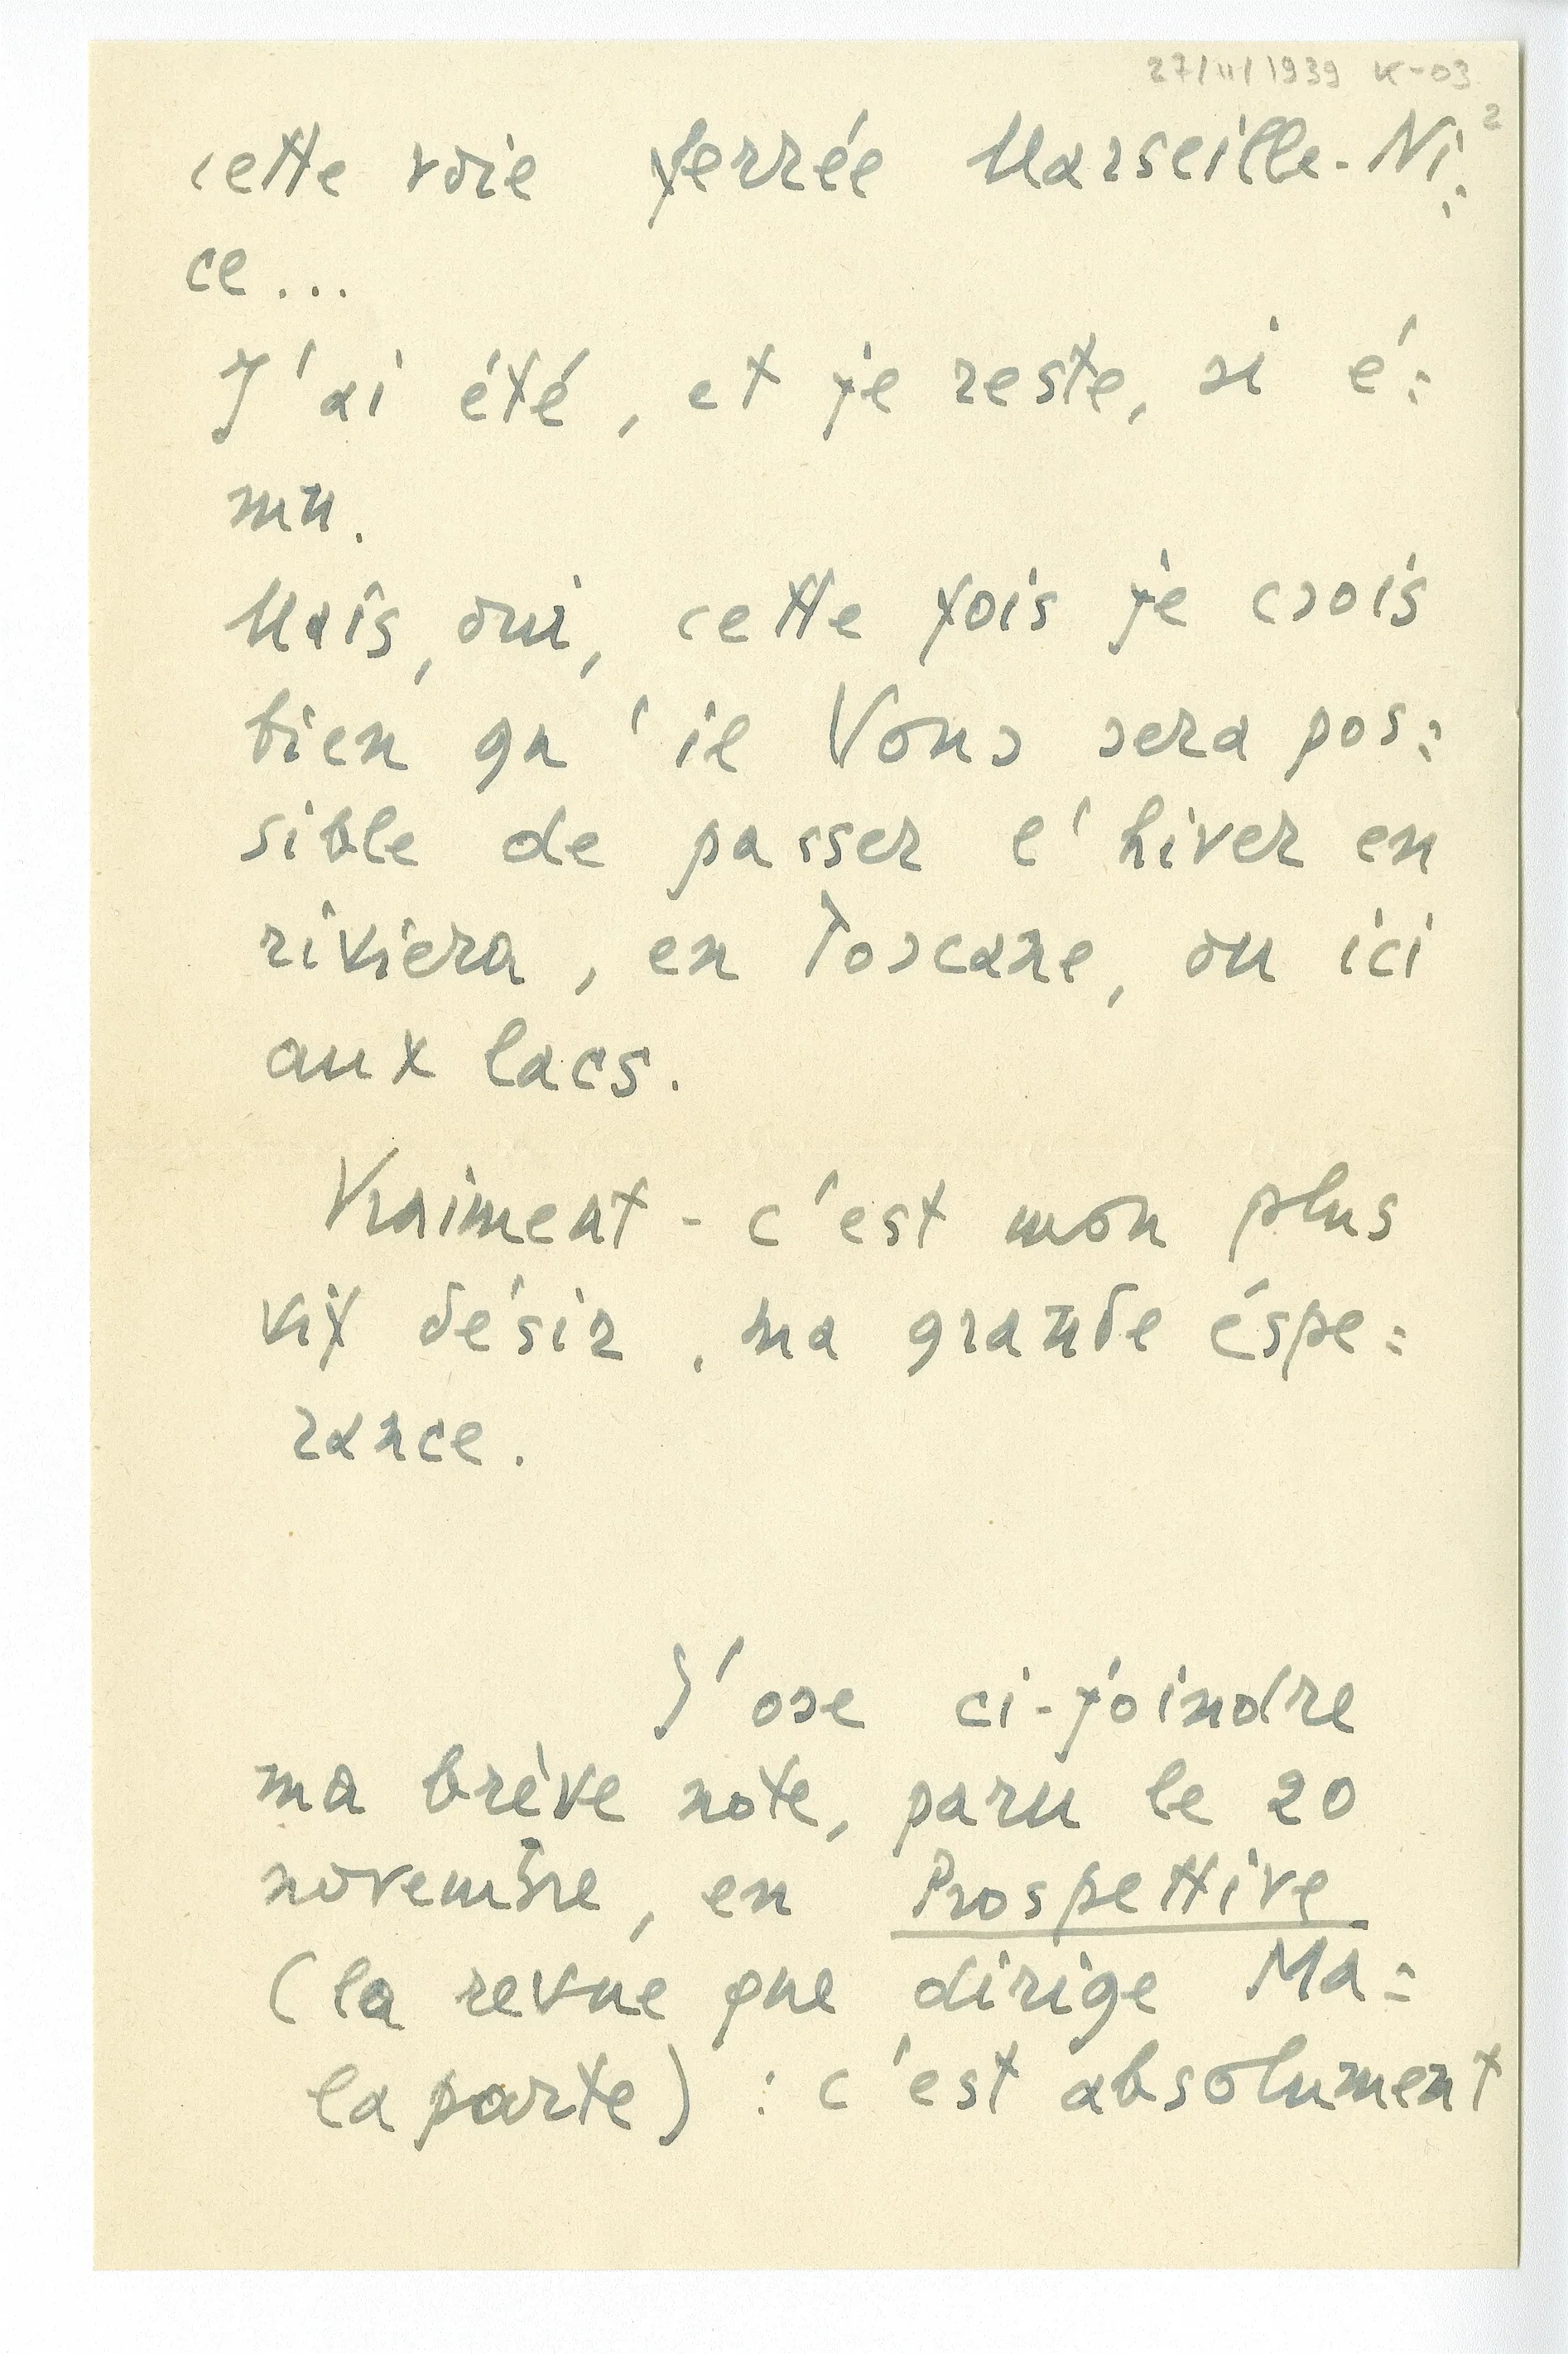 27/11/1939 K-03
2
cette voie ferrée Marseille-Ni=
ce...
J'ai été, et je reste, si é=
mu.
Mais, oui, cette fois je crois
bien qu'il Vous sera pos=
sible de passer l'hiver en
riviera, en Toscane, ou ici
aux lacs.
Vraiment - c'est mon plus
vif désir, ma grande éspe=
rance.
J'ose ci-joindre
ma brève note, paru le 20
novembre, en Prospettive
(la revue que dirige Ma=
laparte) : c'est absolument